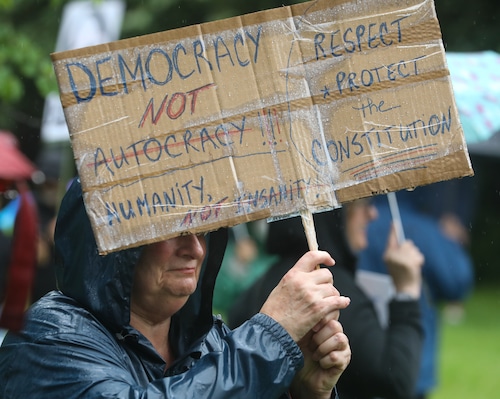 DEMOCRACY
NOT
AUTOCRACY!!!
HUMANITY,
NOT INSANITY
RESPECT
& PROTECT
the
CONSTITUTION